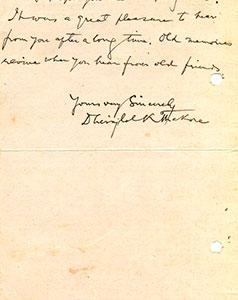 It was a great pleasure to hear
from you after a long time. Old memories
revive when you hear from old friends.
Yours very Sincerely